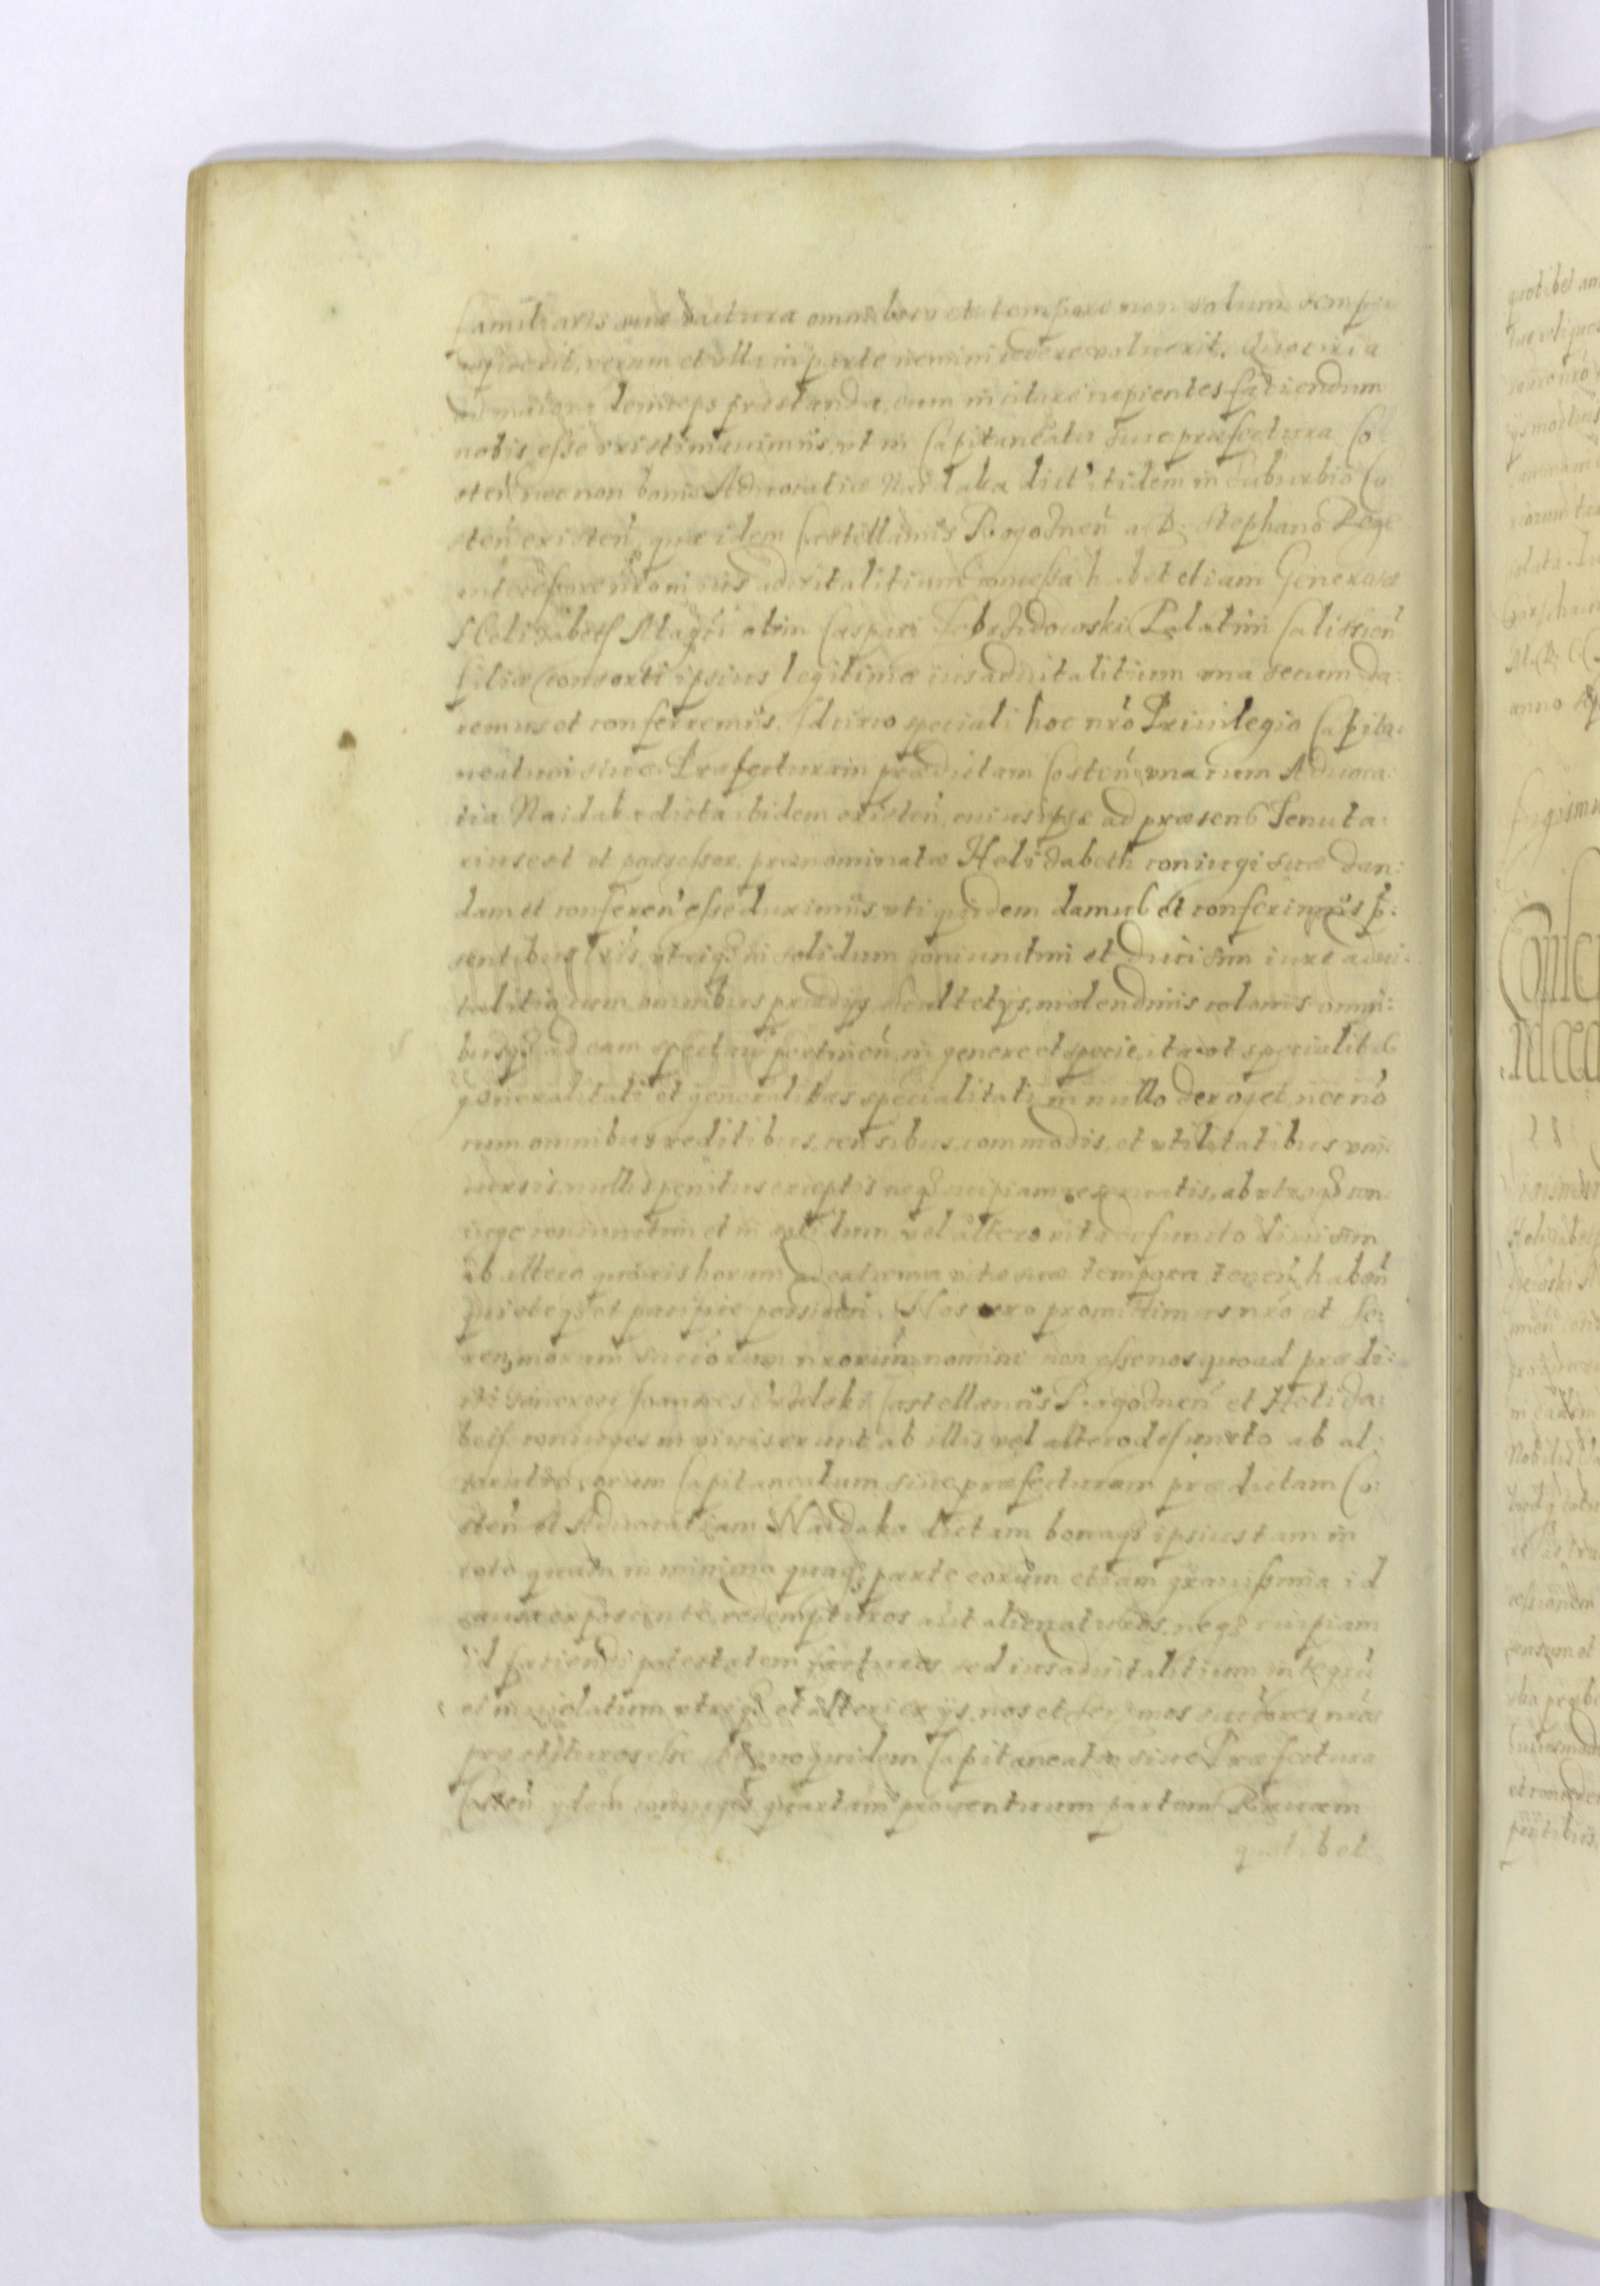 familiaris suae iactura omni loco et tempore non solum semper
verum et ulla in parte nemini cedere voluerit. Quocirca
deinceps praestanda, eum incitare cupientes faciendum
nobis esse existimavimus, ut in Capitaneatu sive praefectura Co
sten̄ nec non bonis Advocatiae Naidaka dict' itidem in suburbio Co
sten̄ existen̄, quae idem Castellanus Rogoznen̄ a D. Stephano Rege
antecessore nr̄o iure advitalitium concessa habet etiam Generosae
Helizabeth Mag̃ci olim Caspari Zebrzidowski Palatini Calissien̄
filiae Consorti ipsius legitimae ius advitalitium una secum da:
remus et conferremus. Idcirco speciali hoc nr̄o Privilegio Capita:
neatum sive Praefecturam praedictam Costen̄ una cum Advoca:
tia Naidaka dicta ibidem existen̄, cuius ipse ad praesens Tenuta:
rius est et possessor, praenominatae Helizabeth coniugi suae dan:
dam et conferen̄ esse duximus, uti quidem damus et conferimus p̄:
sentibus lr̄is, utriq3 in solidum coniunctim et divisim iure advi:
talitio, cum omnibus praediis, scultetys, molendinis colonis omni:
busq3 ad eam spectan̄ pertinen̄, in genere et specie, ita ut specialitas
generalitati et generalitas specialitati in nullo deroget, nec nō
cum omnibus reditibus, censibus, commodis, et utilitatibus uni
versis, nullis penitus exceptis neq3 cuipiam reservatis, ab utroq3 con
iuge coniunctim et in solidum vel altero vita defuncto divisim
ab altero quoūis horum ad extrema vitae suae tempora, tenen̄, haben̄
quieteq3 et pacifice possiden̄. Nos vero promittimus nr̄o et Se:
ren̄morum successorum nr̄orum nomine non esse nos quoad praedi:
cti Generosi Joannes Castellanus Rogoznen̄ et Heliza:
beth coniuges in vivis erunt, ab illis vel altero defuncto ab al:
Capitaneatum sive praefecturam praedictam Co:
sten̄ et Advocatiam Naidaka dictam bonaq3 ipsius tam in
toto quam in minima quaq3 parte eorum etiam gravissima id
causa exposcente, redempturos aut alienaturos, neq3 cuipiam
id faciendi potestatem facturos, sed ius advitalitium integrū
et inviolatum utriq3 et alteri ex ys, nos et Ser̄mos successores nr̄os
praestituros esse. Capitaneatu sive Praefectura
Costen̄ ydem coniuges quartam proventuum partem Ravam
quotlibet